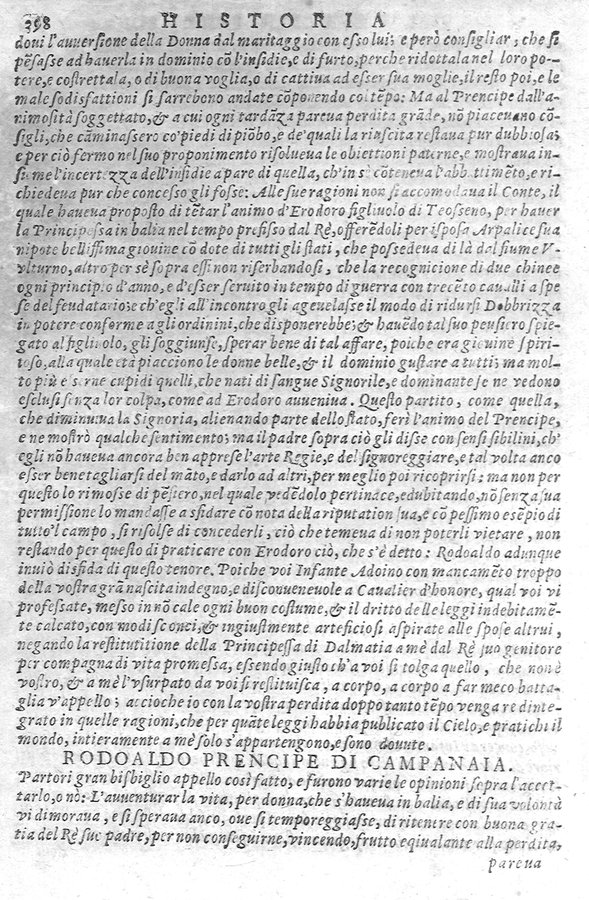 398 HISTORIA
doui l'auuersione della Donna dal maritaggio con esso lui; e però consigliar, che si
pēsasse ad hauerla in dominio cō l'insidie, e di furto, perche ridottala nel loro po-
tere, e costrettala, o di buona voglia, o di cattiua ad esser sua moglie, il resto poi, e le
male sodisfattioni si sarebono andate cōponendo col tēpo: Ma al Prencipe dall'a-
nimosità soggettato, & a cui ogni tardāza pareua perdita grāde, nō piaceuano cō-
sigli, che cāminassero co'piedi di piōbo, e de'quali la riuscita restaua pur dubbiosa;
e per ciò fermo nel suo proponimento risolueua le obiettioni paterne, e mostraua in-
sieme l'incertezza dell'insidie a pare di quella, ch'in sè cōteneua l'abbattimēto, e ri-
chiedeua pur che concesso gli fosse: Alle sue ragioni non si accomodaua il Conte, il
quale haueua proposto di tētar l'animo d'Erodoro figliuolo di Teosseno, per hauer
la Principessa in balia nel tempo prefisso dal Rè, offerēdoli per isposa Arpalice sua
nipote bellissima giouine cō dote di tutti gli stati, che possedeua di là dal fiume V-
ulturno, altro per sè sopra essi non riserbandosi, che la recognicione di due chinee
ogni principio d'anno, e d'esser seruito in tempo di guerra con trecēto caualli a spe
se del feudatario; e ch'egli all'incontro gli ageuolasse il modo di ridursi Dobbrizza
in potere conforme a gli ordinini, che disponerebbe; & hauēdo tal suo pensiero spie-
gato al figliuolo, gli soggiunse, sperar bene di tal affare, poiche era giouine spiri-
toso, alla quale età piacciono le donne belle, & il dominio gustare a tutti; ma mol-
to più e serne cupidi quelli, che nati di sangue Signorile, e dominante se ne vedono
esclusi senza lor colpa, come ad Erodoro auueniua. Questo partito, come quella,
che diminuiua la Signoria, alienando parte dello stato, ferì l'animo del Prencipe,
e ne mostrò qualche sentimento; ma il padre sopra ciò gli disse con sensi sibilini, ch'
egli nō haueua ancora ben apprese l'arte Regie, e del signoreggiare, e tal volta anco
esser bene tagliarsi del māto, e darlo ad altri, per meglio poi ricoprirsi: ma non per
questo lo rimosse di pēsiero, nel quale vedēdolo pertinace, e dubitando, nō senza sua
permissione lo mandasse a sfidare cō nota della riputation sua, e cō pessimo esēpio di
tutto'l campo, si risolse di concederli, ciò che temeua di non poterli vietare, non
restando per questo di praticare con Erodoro ciò, che s'è detto: Rodoaldo adunque
inuiò disfida di questo tenore. Poiche voi Infante Adoino con mancamēto troppo
della vostra grā nascita indegno, e disconueneuole a Caualier d'honore, qual voi vi
professate, messo in nō cale ogni buon costume, & il dritto delle leggi indebitamē-
te calcato, con modi sconci, & ingiustmente arteficiosi aspirate alle spose altrui,
negando la restitutitione della Principessa di Dalmatia a mè dal Rè suo genitore
per compagna di vita promessa, essendo giusto ch'a voi si tolga quello, che non è
vostro, & a mè l'vsurpato da voi si restituisca, a corpo, a corpo a far meco batta-
glia v'appello; accioche io con la vostra perdita doppo tanto tēpo venga redinte-
grato in quelle ragioni, che per quāte leggi habbia publicato il Cielo, e pratichi il
mondo, intieramente a mè solo s'appartengono, e sono douute.
RODOALDO PRENCIPE DI CAMPANAIA.
Partorì gran bisbiglio appello così fatto, e furono varie le opinioni sopra l'accet-
tarlo, o nò: L'auuenturar la vita, per donna, che s'haueua in balia, e di sua volontà
vi dimoraua, e si speraua anco, oue si temporeggiasse, di ritenere con buona gra-
tia del Rè suo padre, per non conseguirne, vincendo, frutto equiualante alla perdita,
pareua